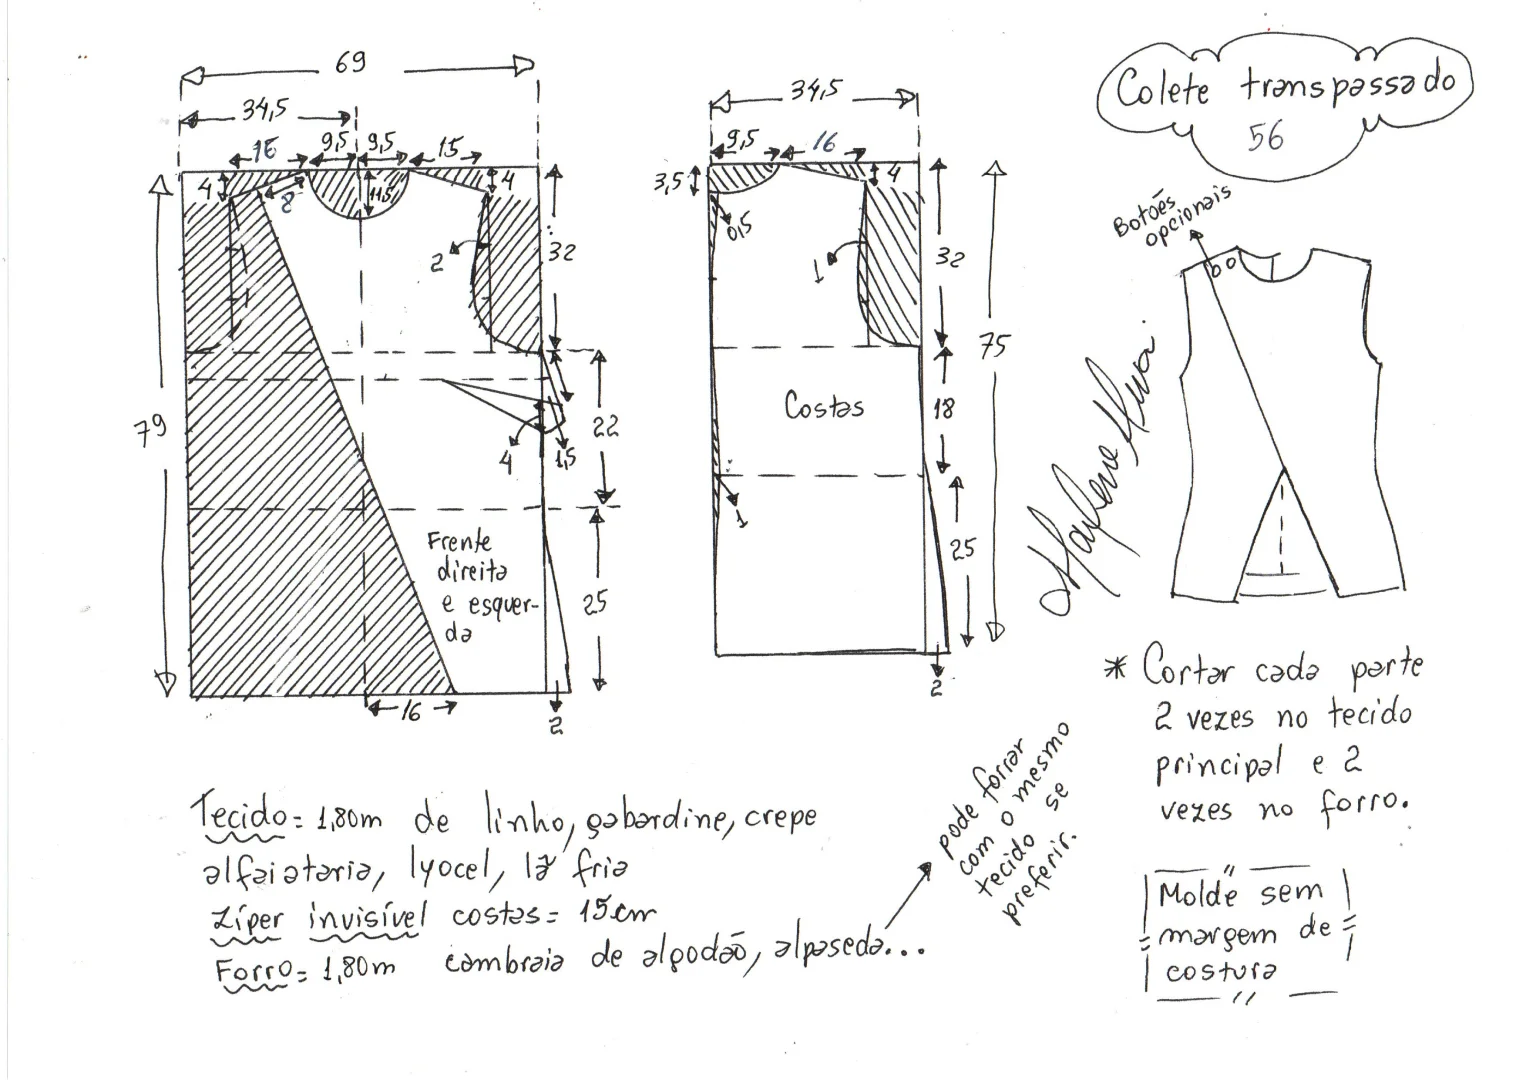 69
34,5
16 9,5 9,5 15
4 8 11,5 4
2
32
79
22
4 1,5
Frente
direita
e esquer-
da
25
16
2
34,5
9,5 16
3,5 4
0,5
1
32
75
Costas
18
1
25
2
Colete transpassado
56
Botões
opcionais
* Cortar cada parte
2 vezes no tecido
principal e 2
vezes no forro.
Molde sem
margem de
costura
Tecido= 1,80m de linho, gabardine, crepe
alfaiataria, lyocel, lã fria
Zíper invisível costas= 15cm
Forro= 1,80m cambraia de algodão, alpaseda...
pode forrar
com o mesmo
tecido se
preferir.